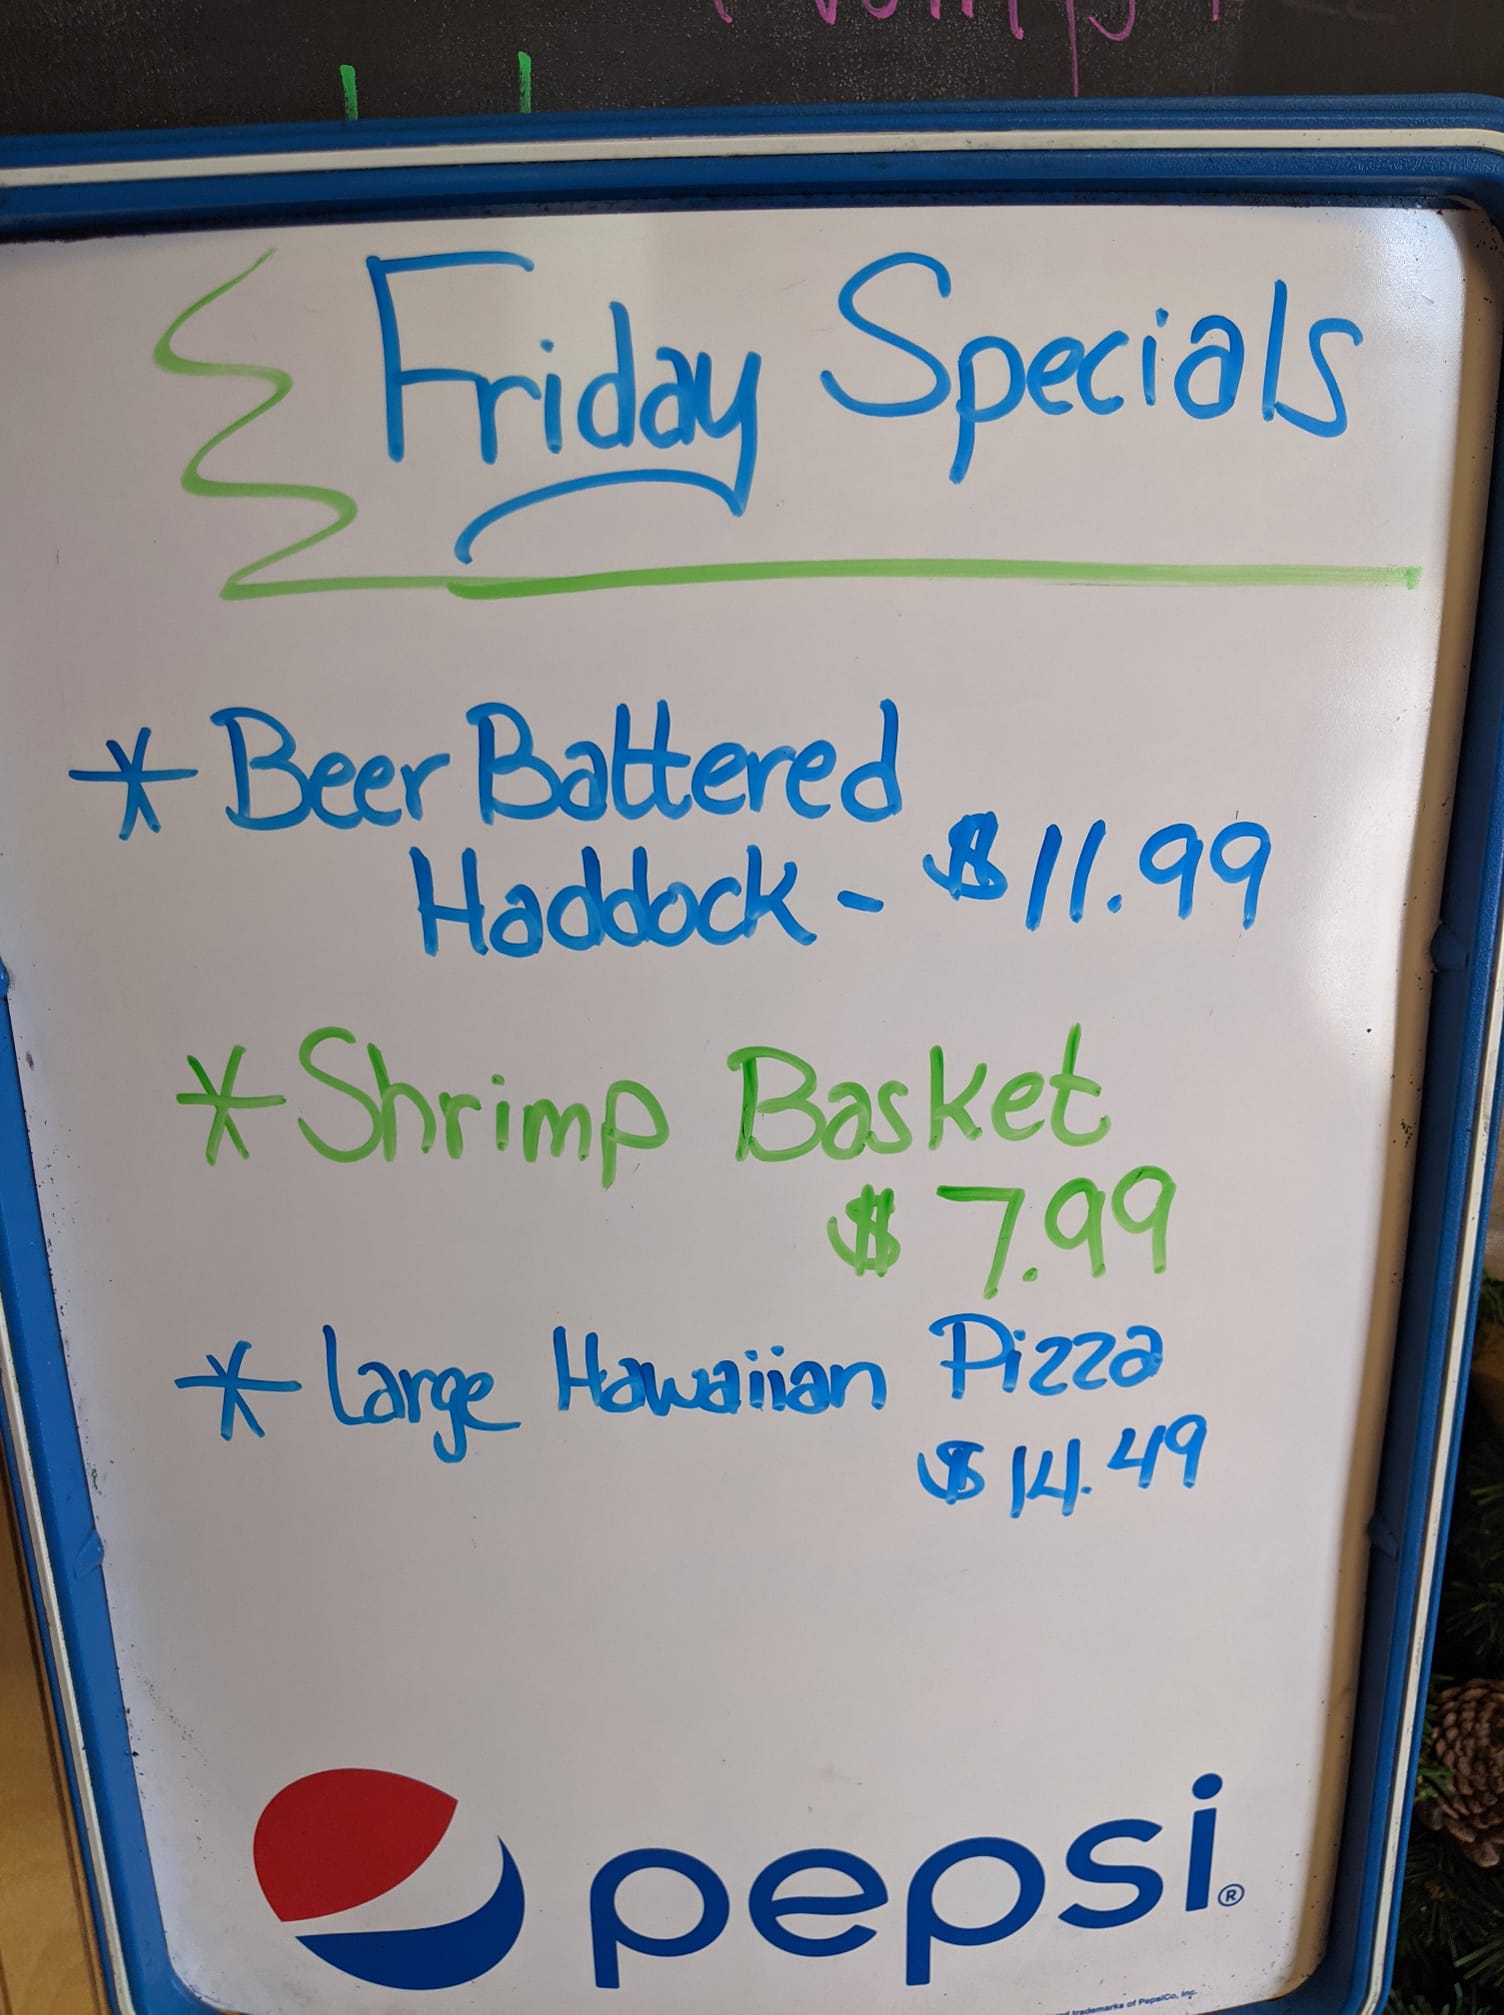 Friday Specials
* Beer Battered
Haddock - $11.99
* Shrimp Basket
$7.99
* Large Hawaiian Pizza
$14.49
pepsi®
trademarks of PepsiCo, Inc.